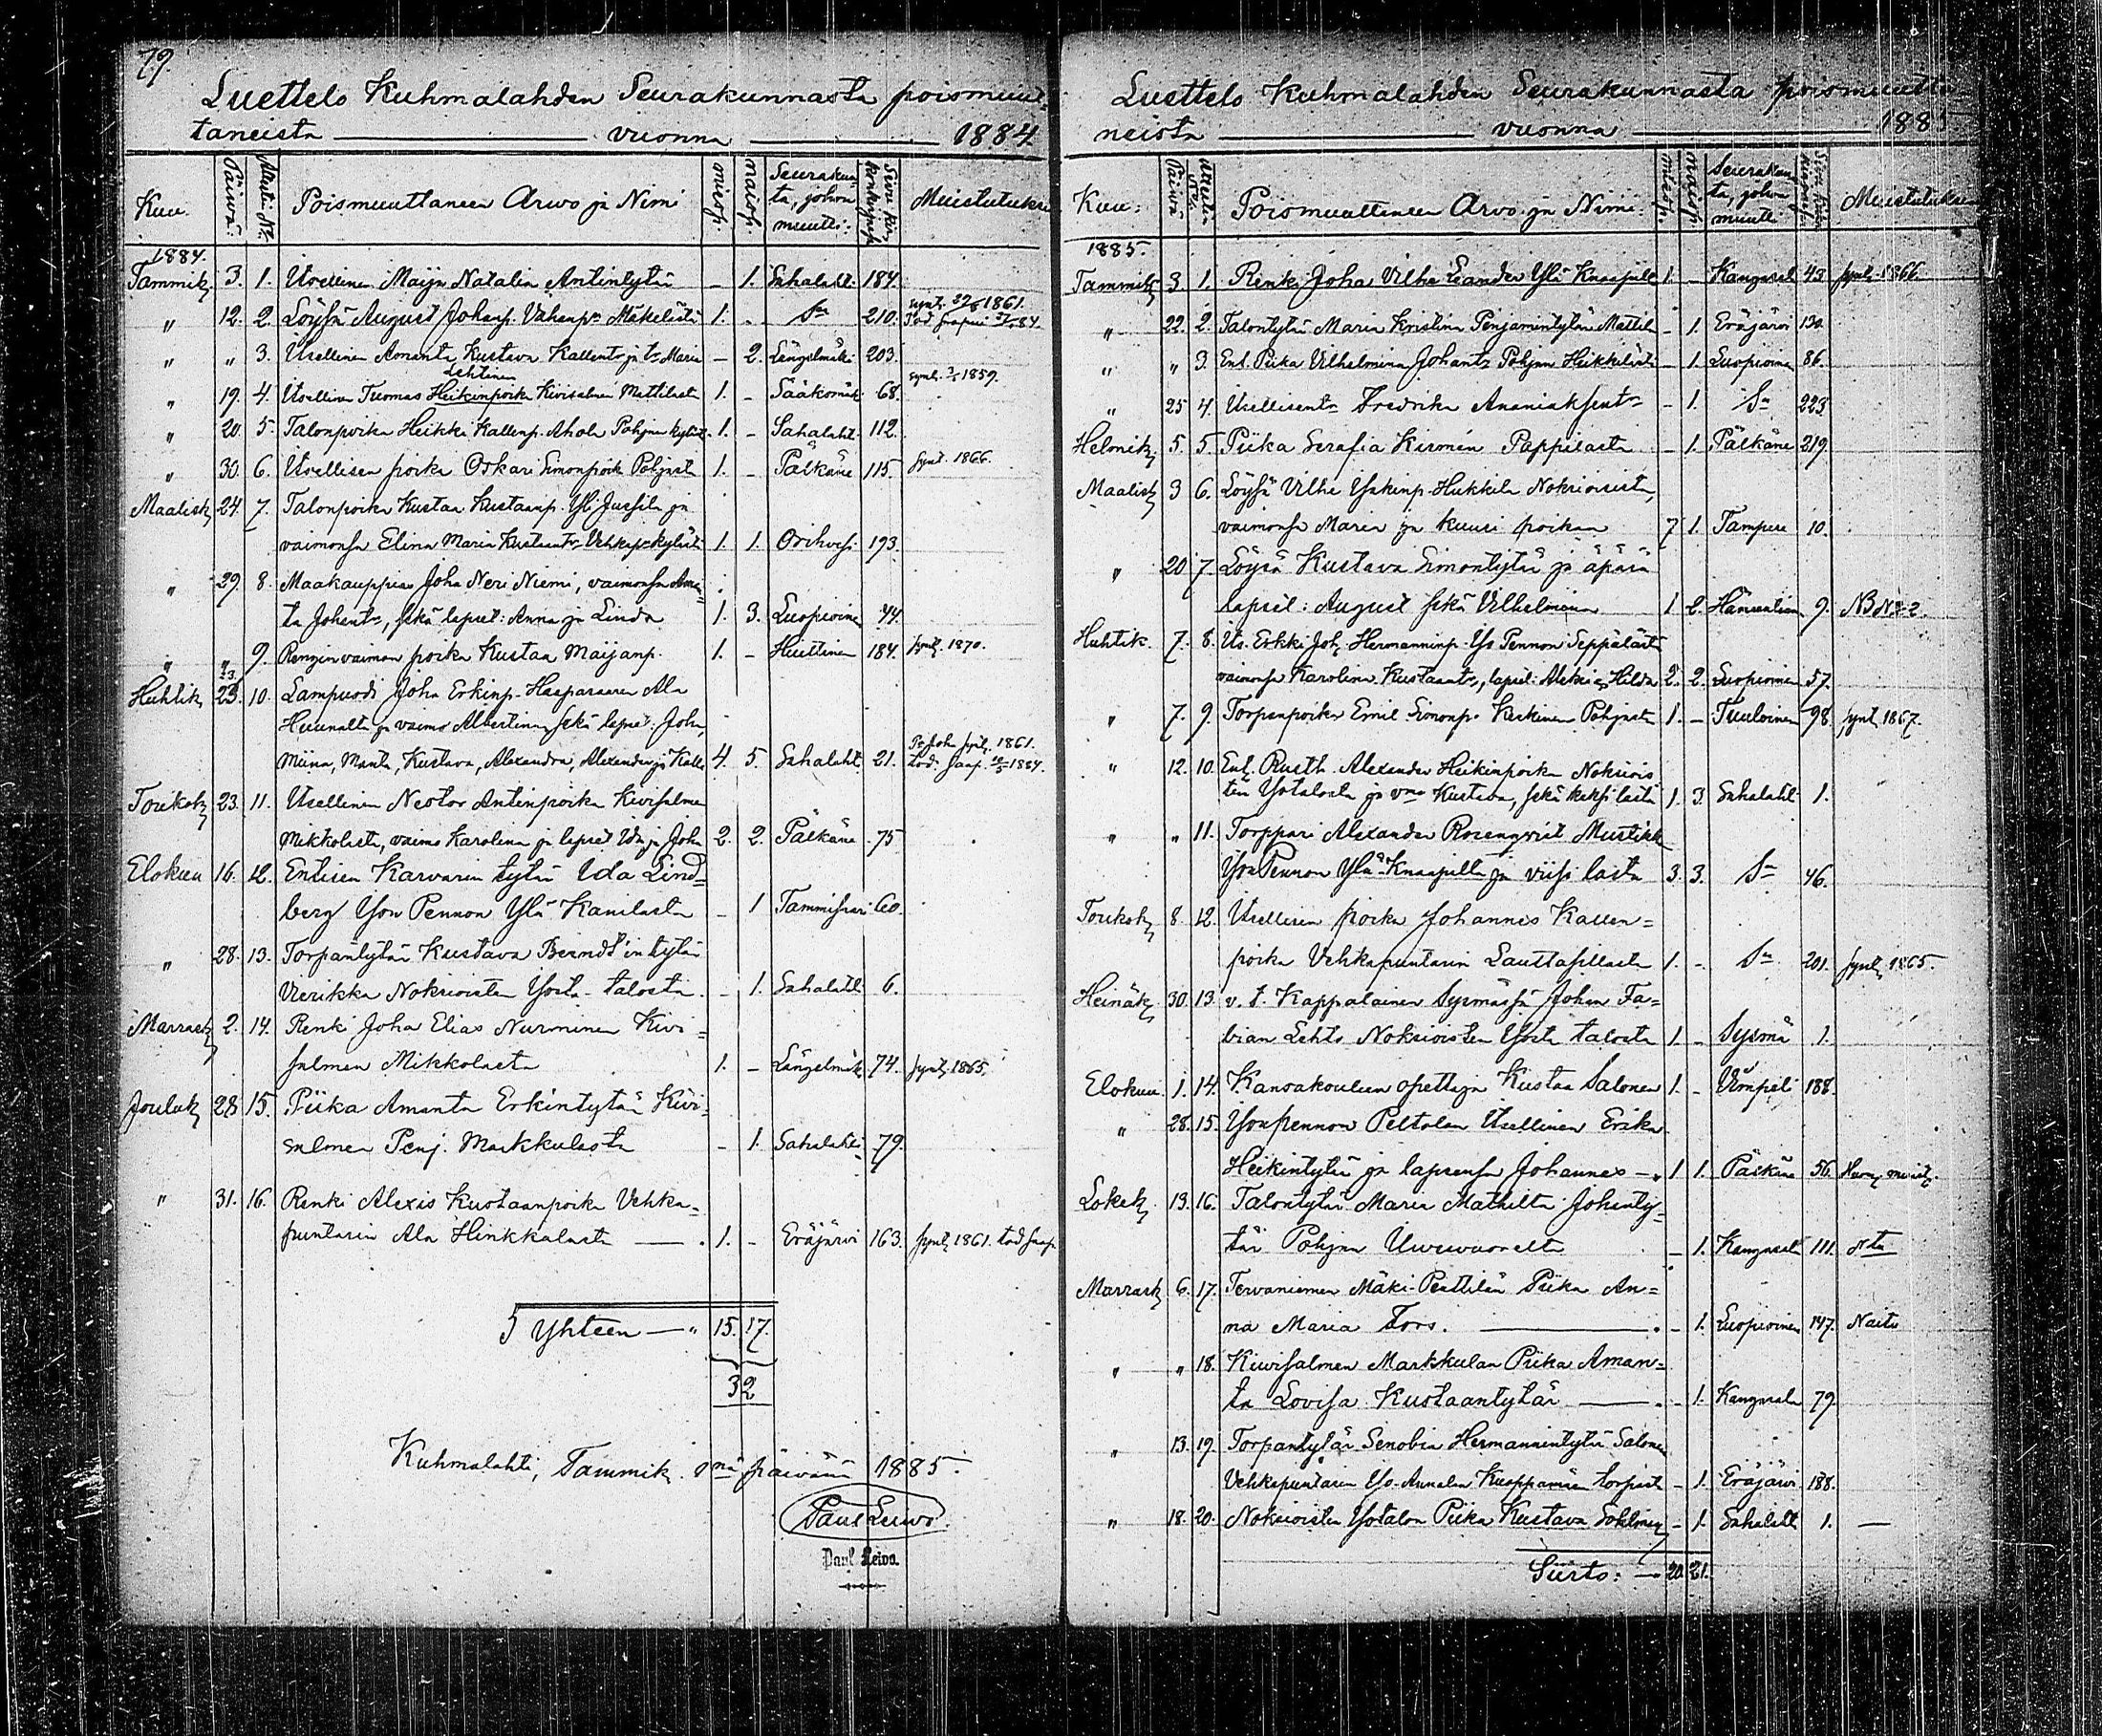 79.
Luettelo Kuhmalahden Seurakunnasta poismuut-
taneista vuonna 1884.
Kuu. Päiwä. Muutto No. Poismuuttaneen Arwo ja Nimi miesp. naisp. Seurakun- ta, johon muutti: Sivu kirkonkirjassa Muistutuksia
1884.
Tammik. 3. 1. Itsellinen Maija Natalia Antintytär – 1. Sahalaht. 184.
" 12. 2. Löysä August Johanp. Vähänp. Mäkelästä 1. – Sn 210. synt. 1861.
" " 3. Itsellinen Amanta Kustava Kallent. ja t. Maria – 2. Längelmäki 203.
Lehtinen
" 19. 4. Itsellinen Tuomas Heikinpoika Kivisalmen Mattilasta 1. – Sääksmäk. 68. synt. 1859.
" 20. 5. Talonpoika Heikki Kallenp. Ahola Pohjan kyläst. 1. – Sahalaht. 112.
" 30. 6. Itsellisen poika Oskari Simonpoika Pohjast. 1. – Pälkäne 115. Synt. 1866.
Maalisk. 24. 7. Talonpoika Kustaa Kustaanp. Yli Jussila ja
vaimonsa Elina Maria Kustaant. Vehkap. kyläst. 1. 1. Orihvesi 193.
" 29. 8. Maakauppias Joha Neri Niemi, vaimonsa Aman-
ta Johant., sekä lapset: Anna ja Linda 1. 3. Luopioinen 44.
" " 9. Rengin vaimon poika Kustaa Maijanp. 1. – Huittinen 184. synt. 1870.
Huhtik. 23. 10. Lampuodi Joha Erkinp. Haaparanen Ala
Huunalta ja vaimo Albertina sekä lapset: Joha,
Miina, Manta, Kustava, Alexandra, Alexander ja Kalle 4. 5. Sahalaht. 21. P. Joha synt. 1861.
Toukok. 23. 11. Itsellinen Nestor Antinpoika Kivisalmen
Mikkolasta, vaimo Karolina ja lapset Ida ja Joha 2. 2. Pälkäne 75.
Elokuu 16. 12. Entisen Karvarin tytär Ida Lind-
berg Yson Pennon Ylä Kanilasta – 1 Tammisaari 60.
" 28. 13. Torpantytär Kustava Berndt'intytär
Vierikka Noksioisten Yosta-talosta. – 1. Sahalaht. 6.
Marrask. 2. 14. Renki Joha Elias Nurminen Kivi-
salmen Mikkolasta 1. – Längelmäk. 74. synt. 1865.
Jouluk. 28. 15. Piika Amanta Erkintytär Kivi-
salmen Penj. Markkulasta – 1. Sahalahti 79.
" 31. 16. Renki Alexis Kustaanpoika Vehka-
puntarin Ala Hinkkalasta 1. – Eräjärvi 163. synt. 1861. tod.
Yhteen 15. 17.
32
Kuhmalahti, Tammik. päivänä 1885.
Paul Leivo.
Paul Leivo.
Luettelo Kuhmalahden Seurakunnasta poismuutta-
neista vuonna 1885
Kuu: Päivä Poismuuttaneen Arvo ja Nimi: miesp. naisp. Seurakun- ta, johon muutti Muistutuksia
1885.
Tammik. 3 1. Renki Joha Vilhe Leander Ylä Knaapila 1. – Kangasal. 43 synt. 1866.
" 22. 2. Talontytär Maria Kristina Penjamintytär Mattila – 1. Eräjärvi 130.
" " 3. Ent. Piika Vilhelmina Johant. Pohjan Heikkilästä – 1. Luopioinen 86.
" 25 4. Itsellisent. Fredrika Ananiaksent. – 1. Sn 223
Helmik. 5. 5. Piika Serafia Kirmén Pappilasta – 1. Pälkäne 219.
Maalisk. 3 6. Löysä Vilhe Yrkinp. Hukkila Noksioisista,
vaimonsa Maria ja kuusi poikaa 7 1. Tampere 10.
" 20 7. Löysä Kustava Simontytär ja äpärä
lapset: August sekä Vilhelmiina 1 2. 9. NB
Huhtik. 7. 8. Its. Erkki Joh. Hermanninp. Yso Pennon Seppälästä
vaimonsa Karolina Kustaant., lapset: Aleksi ja Hilda 2. 2. Luopioinen 57.
" 7. 9. Torpanpoika Emil Simonp. Keskinen Pohjasta 1. – Tuuloinen 98. synt. 1867.
" 12. 10. Ent. Rusth. Alexander Heikinpoika Noksiois-
ten Ysotalosta ja vmo Kustava, sekä kaksi lasta 1. 3. Sahalaht. 1.
" " 11. Torppari Alexander Rosenqvist Mustikk
Yson Pennon Ylä-Knaapilta ja viisi lasta 3. 3. Sn 46.
Toukok. 8. 12. Itsellisen poika Johannes Kallen-
poika Vehkapuntarin Lauttasillasta 1. – Sn 201. synt. 1865.
Heinäk. 30. 13. v. t. Kappalainen Sysmässä Johan Fa-
bian Lehto Noksioisten Yosta talosta 1. – Sysmä 1.
Elokuu. 1. 14. Kansakoulun opettaja Kustaa Salonen 1. – Vimpeli 188.
" 28. 15. Yson Pennon Peltolan Itsellinen Erika
Heikintytär ja lapsensa Johannes 1 1. Pälkäne 56.
Lokak. 13. 16. Talontytär Maria Mathilta Johanty-
tär Pohjan Uuvuorelta – 1. Kangasala 111.
Marrask. 6. 17. Tervaniemen Mäki-Penttilän Piika An-
na Maria Fors. – 1. Luopioinen 147. Naitu
" " 18. Kiwisalmen Markkulan Piika Aman-
ta Lovisa Kustaantytär – 1. Kangasala 79.
" 13. 19. Torpantytär Senobia Hermannintytär Salonen
Vehkapuntarin Yso-Annalan Kuoppamäen torpast. – 1. Eräjärvi 188.
" 18. 20. Noksioisten Ysotalon Piika Kustava Sohlman – 1. Sahalaht. 1. –
Siirto: 20. 21.